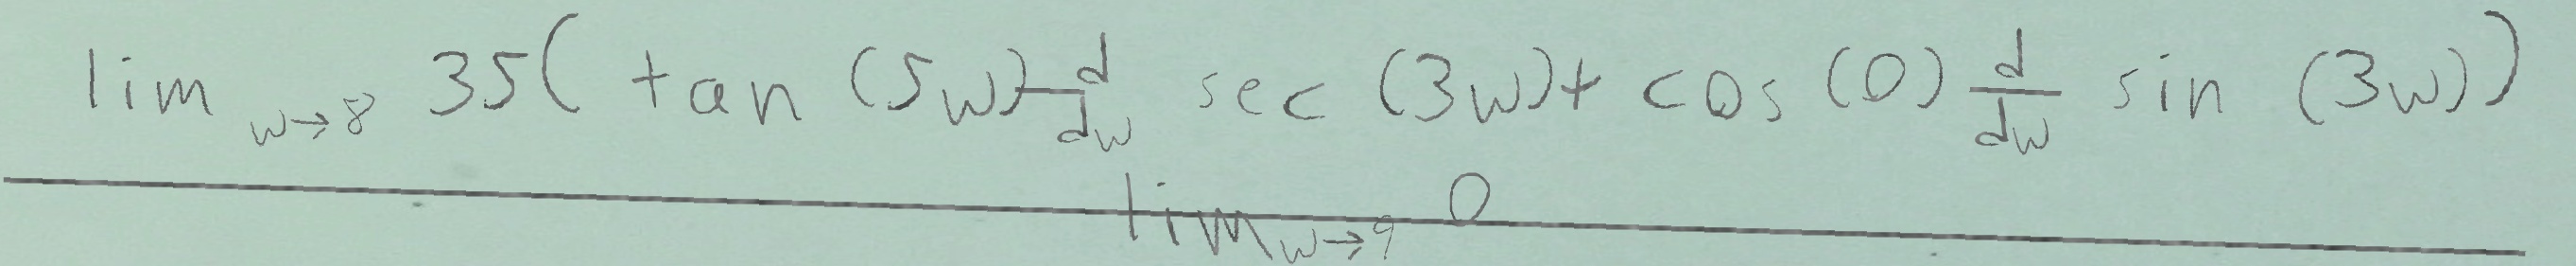 lim w→8 35( tan (5w) d/dw sec (3w)+ cos (0) d/dw sin (3w))
lim w→9 0